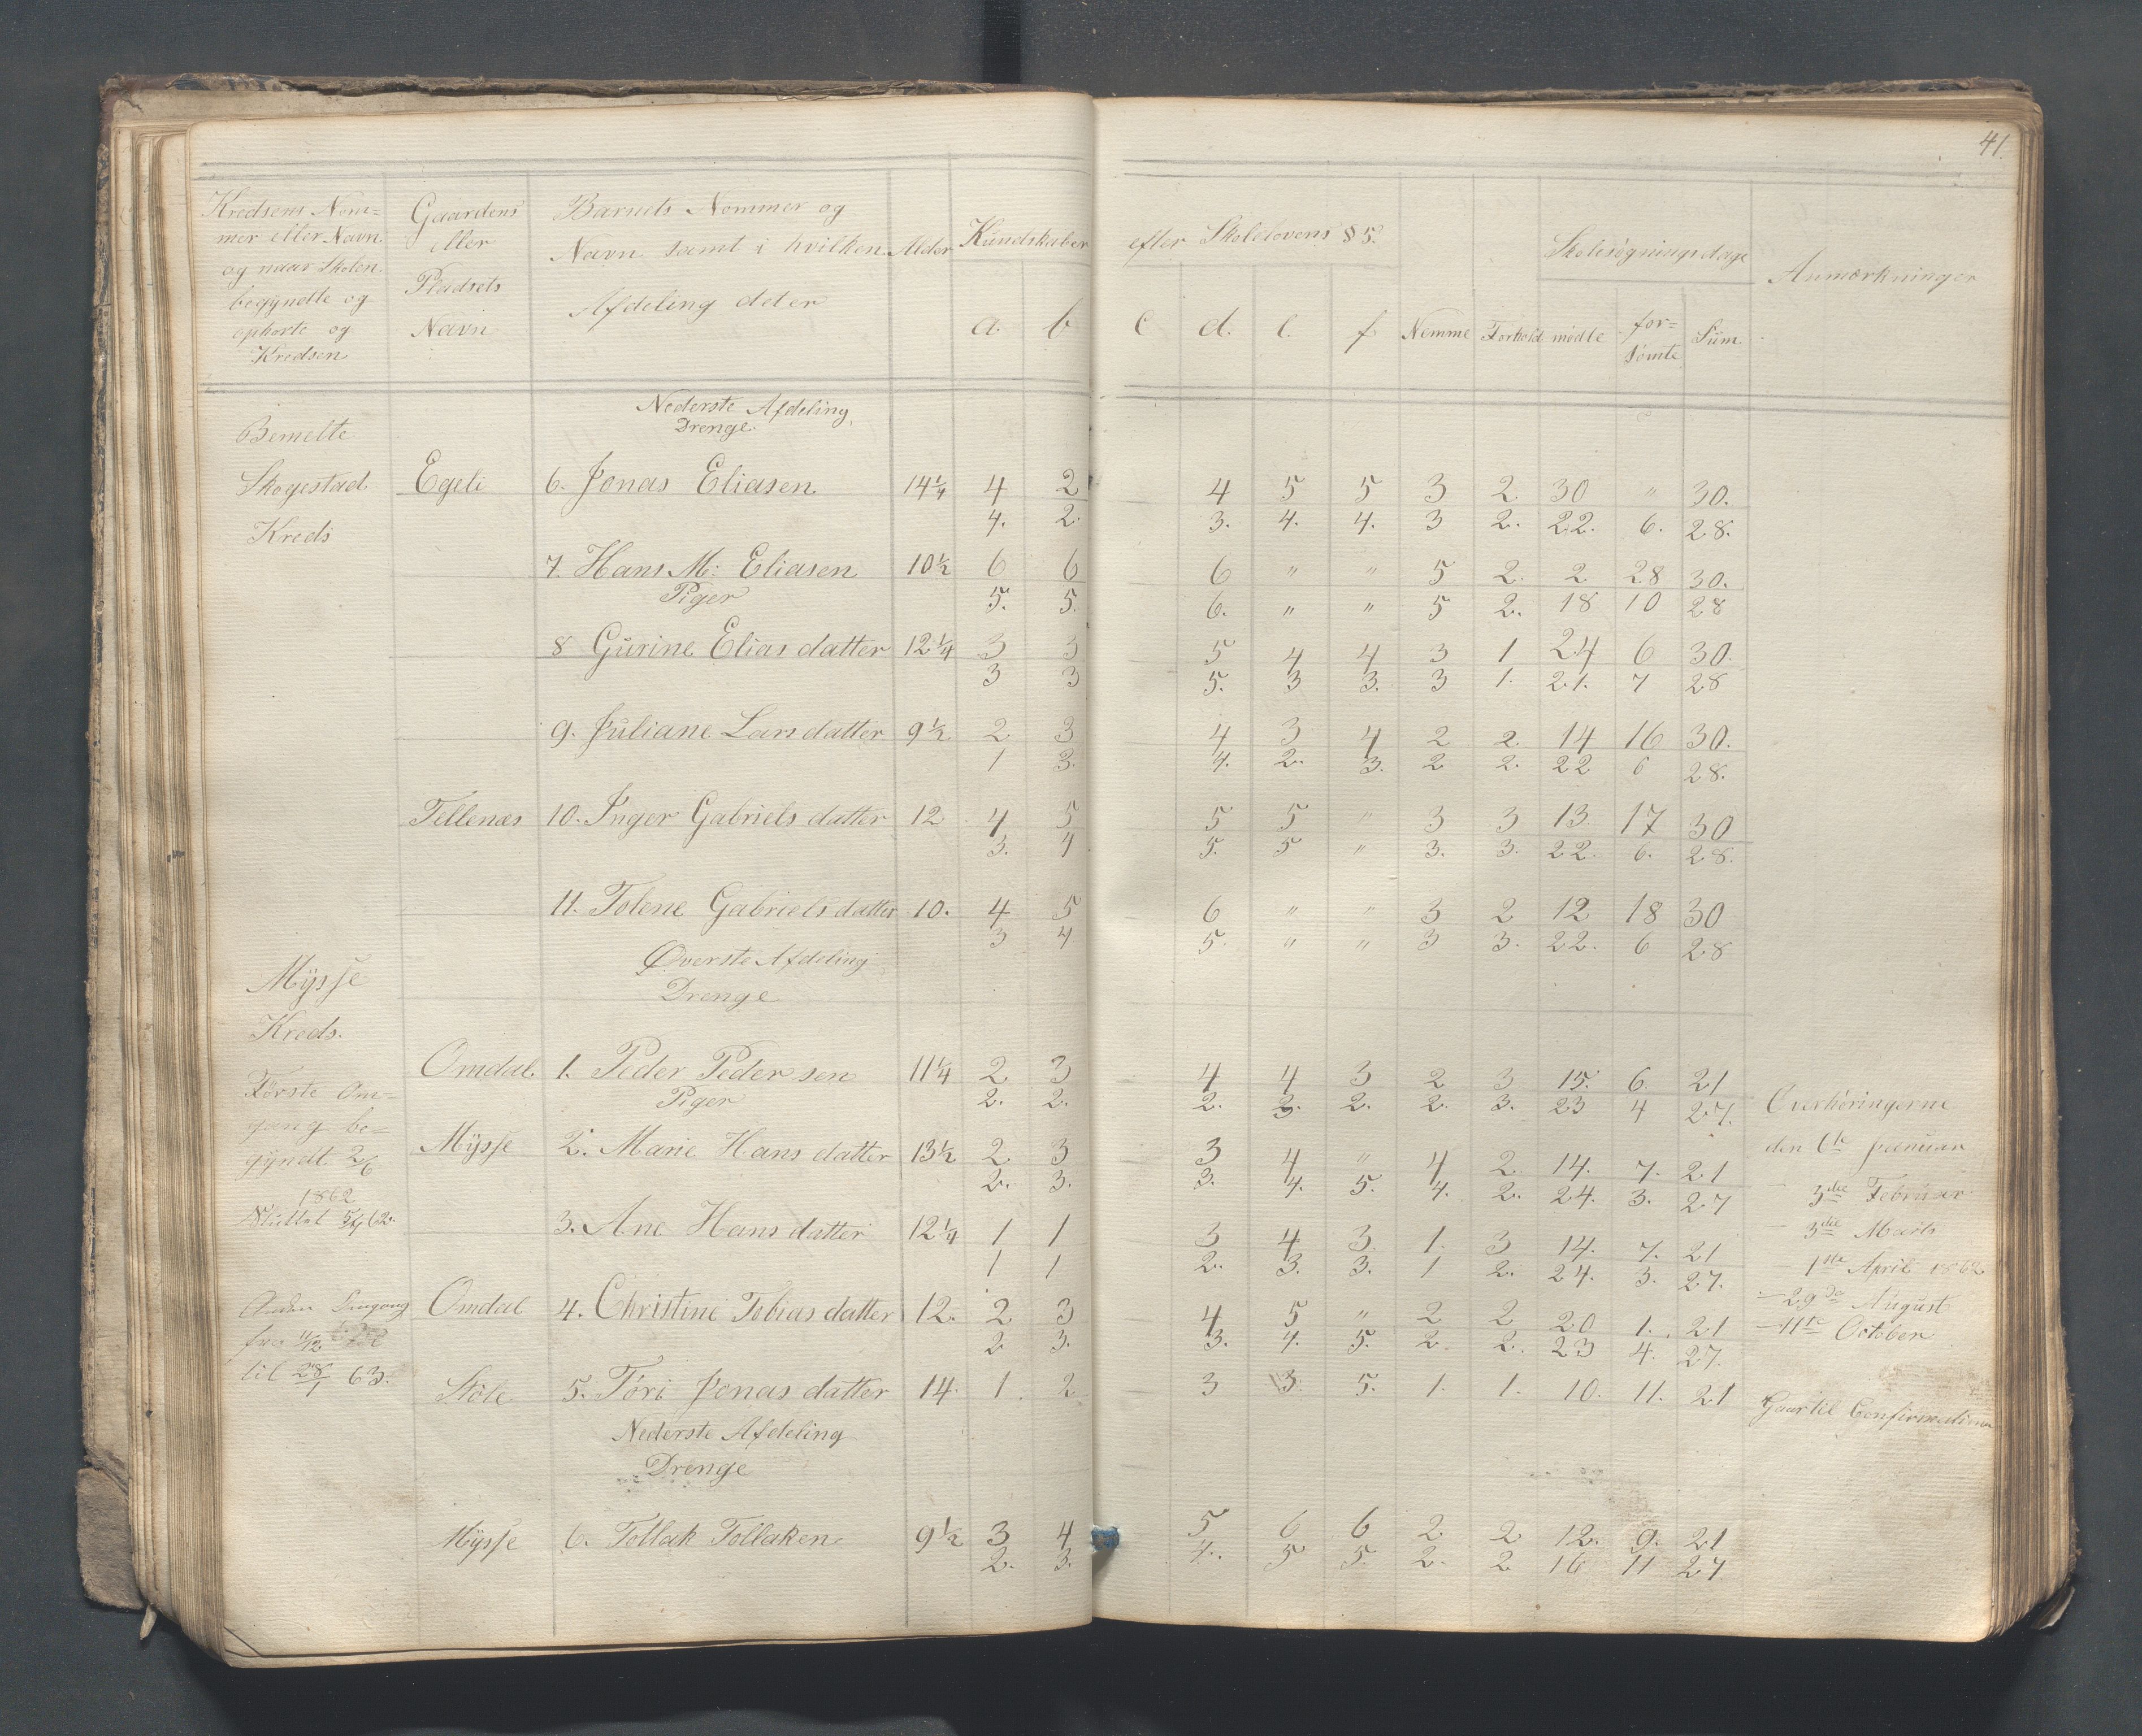 41
Kredsens Nom=
mer eller Navn
og naar Skolen
begyndte og
ophørte og
Kredsen
Gaardens
eller
Pladsets
Navn
Barnets Nommer og
Navn samt i hvilken
Afdeling det er
Alder
Kundskaber
a. b
efter Skolelovens § 5.
c d. e. f Nemme Forhold
Skolesøgningsdage
mødte for=
sømte Sum
Anmærkninger
Nederste Afdeling
Drenge.
Bemelte
Skogestad
Kreds
Egeli 6. Jonas Eliasen 14 1/4 4 2 4 5 5 3 2 30 " 30.
4. 2. 3. 4. 4. 3 2. 22. 6. 28.
7. Hans M: Eliasen 10 1/2 6 6 6 " " 5 2. 2 28 30.
Piger 5. 5. 6. " " 5 2. 18 10 28
8 Gurine Elias datter 12 1/4 3 3 5 4 4 3 1 24 6 30.
3 3 5. 3 3. 3 1. 21. 7 28
9. Juliane Lars datter 9 1/2 2 3 4 3 4 2 2 14 16 30.
1 3. 4. 2. 3. 2 2. 22 6 28.
Tellenæs 10. Inger Gabriels datter 12 4 5 5 5 " 3 3 13 17 30
3. 4 5. 5 " 3. 3. 22. 6. 28.
11. Tolene Gabriels datter 10. 4 5 6 " " 3 2 12 18 30
3 4 5. " " 3 3. 22. 6 28
Øverste Afdeling
Drenge
Mysse
Kreds.
Omdal. 1. Peder Peder sen 11 1/4 2 3 4 4 3 2 3 15. 6. 21
Piger 2. 2. 2. 3. 2. 2. 3. 23 4 27.
Første Om=
gang be=
gyndt 2/6
1862
Sluttet 5/7 62.
Mysse 2. Marie Hans datter 13 1/2 2 3 3 4 " 4 2 14. 7. 21
2. 3. 3. 4. 5. 4. 2. 24. 3. 27
3. Ane Hans datter 12 1/4 1 1 3 4 3. 1. 3 14. 7. 21
1 1 2. 3. 3. 1 2. 24. 3. 27.
Anden Omgang
fra 11/12
til 28/1 63.
Omdal 4. Christine Tobias datter 12. 2 3 4 5 " 2 2 20 1. 21
2 3. 3. 4. 5. 2. 2. 23 4. 27.
Støle 5. Tori Jonas datter 14. 1. 2 3 3. 5. 1. 1. 10. 11. 21 Gaar til Confirmationen
Overhøringerne
den 6te Januar
— 3die Februar
— 3die Marts
1ste April 1862
— 29de August
— 11te October
Nederste Afdeling
Drenge
Mysse 6. Tollak Tollaksen 9 1/2 3 4 5 6 6 2 2 12. 9. 21
2. 3. 4. 5 5. 2. 2 16 11 27